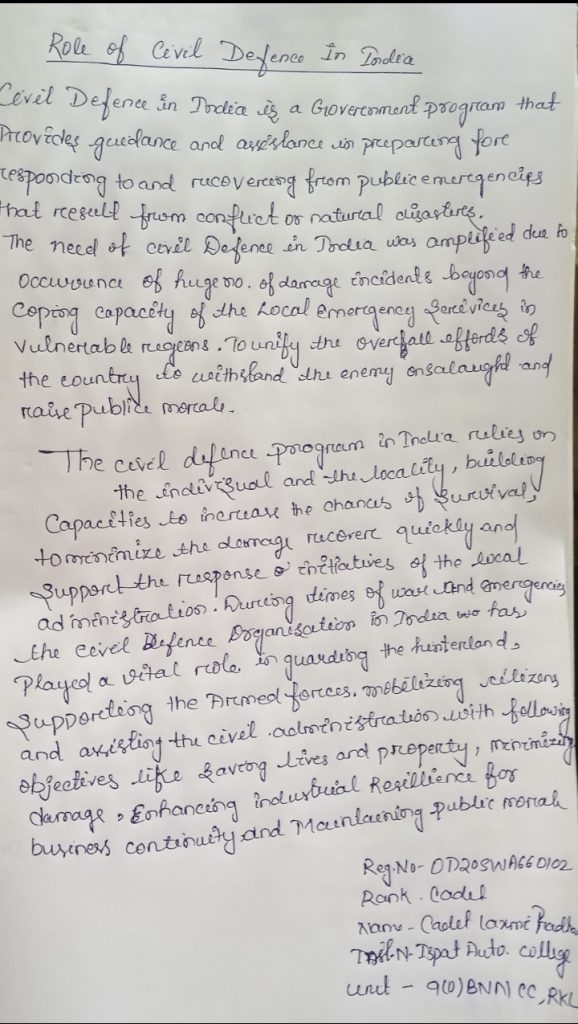 Role of Civil Defence In India
Civil Defence in India is a Government program that
Provides guidance and assistance in preparing fore
responding to and recovering from public emergencies
that result from conflict or natural disasters.
The need of civil Defence in India was amplified due to
Occurence of huge no. of damage incidents beyond the
Coping capacity of the Local emergency Services in
vulnerable regions. To unify the overfall effords of
the country to withstand the enemy onsalaught and
raise public morale.
The civil defence program in India relies on
the indivisual and the locality, building
Capacities to increase the chances of Survival,
to minimize the damage recover quickly and
Support the response & initiatives of the local
administration. During times of war and emergencies
the civil Defence Organisation in India has
Played a vital role in guarding the hinterland,
Supporting the Armed forces, mobilizing citizens
and assisting the civil administration with following
objectives like Saving lives and property, minimizing
damage, Enhancing industrial Resillience for
business continuity and Maintaining public morale
Reg.No- OD20SWA660102
Rank. Cadet
Name - Cadet Laxmi
Ispat Auto. college
unit - 9(O)BN NCC, RKL